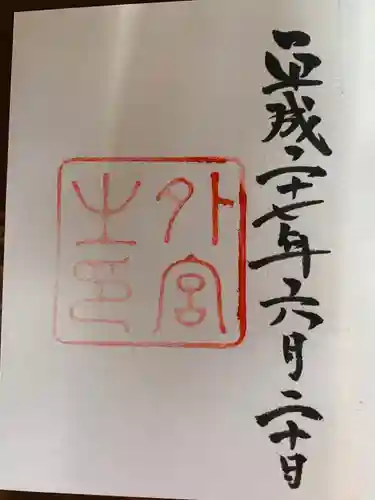 平成二十七年六月二十日
外宮
之印